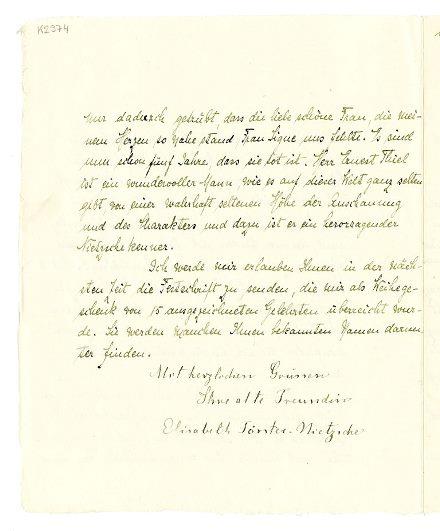 K2974
nur dadurch getrübt, dass die liebe schöne Frau, die mei-
nem Herzen so nahe stand Frau Signe uns fehlte. Es sind
nun schon fünf Jahre, dass sie tot ist. Herr Ernest Thiel
ist ein wundervoller Mann wie es auf dieser Welt ganz selten
gibt von einer wahrhaft seltenen Höhe der Anschauung
und des Charakters und dazu ist er ein hervorragender
Nietzschekenner.
Ich werde mir erlauben Ihnen in der näch-
sten Zeit die Festschrift zu senden, die mir als Weihege-
schenk von 15 ausgezeichneten Gelehrten überreicht wur-
de. Sie werden manchen Ihnen bekannten Namen darun-
ter finden.
Mit herzlichen Grüssen
Ihre alte Freundin
Elisabeth Förster-Nietzsche